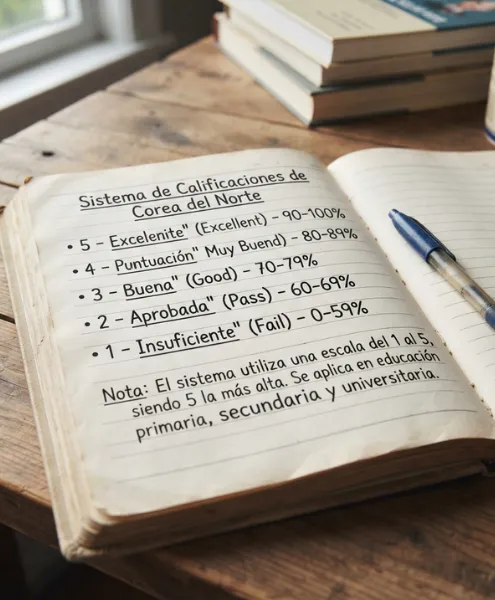 Sistema de Calificaciones de
Corea del Norte
• 5 - Excelenite" (Excellent) - 90-100%
• 4 - Puntuación" Muy Buend) - 80-89%
• 3 - Buena" (Good) - 70-79%
• 2 - Aprobada" (Pass) - 60-69%
• 1 - Insuficiente" (Fail) - 0-59%
Nota: El sistema utiliza una escala del 1 al 5,
siendo 5 la más alta. Se aplica en educación
primaria, secundaria y universitaria.